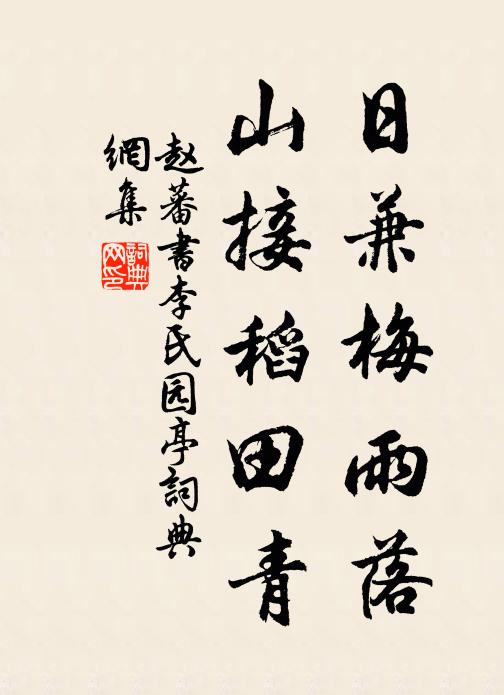 日兼梅雨落
山接稻田青
赵蕃書李氏园亭詞典
網集
詞典网印